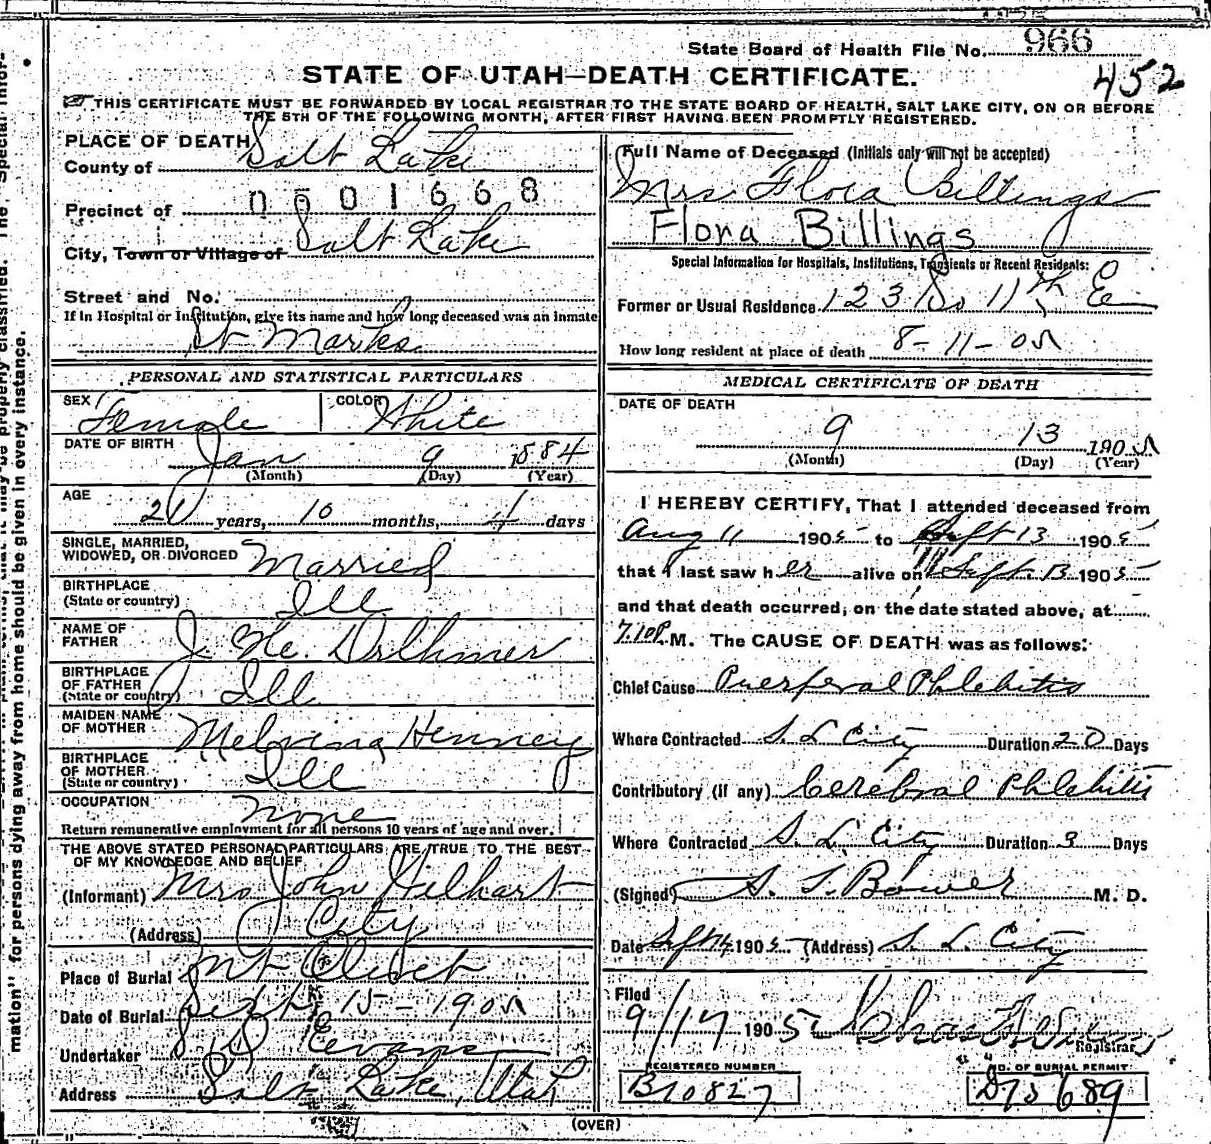 State Board of Health File No. 966
452
STATE OF UTAH—DEATH CERTIFICATE.
THIS CERTIFICATE MUST BE FORWARDED BY LOCAL REGISTRAR TO THE STATE BOARD OF HEALTH, SALT LAKE CITY, ON OR BEFORE
THE 5TH OF THE FOLLOWING MONTH, AFTER FIRST HAVING BEEN PROMPTLY REGISTERED.
PLACE OF DEATH
County of Salt Lake
Precinct of 0501668
City, Town or Village of Salt Lake
Street and No.
If in Hospital or Institution, give its name and how long deceased was an inmate
St Marks
PERSONAL AND STATISTICAL PARTICULARS
SEX Female COLOR White
DATE OF BIRTH
Jan 9 1884
(Month) (Day) (Year)
AGE
21 years, 10 months, 4 days
SINGLE, MARRIED,
WIDOWED, OR DIVORCED Married
BIRTHPLACE
(State or country) Ill
NAME OF
FATHER J. He.
BIRTHPLACE
OF FATHER
(State or country) Ill
MAIDEN NAME
OF MOTHER Melvina Henney
BIRTHPLACE
OF MOTHER
(State or country) Ill
OCCUPATION None
Return remunerative employment for all persons 10 years of age and over.
THE ABOVE STATED PERSONAL PARTICULARS ARE TRUE TO THE BEST
OF MY KNOWLEDGE AND BELIEF
(Informant) Mrs John Gilhart
(Address) City
Place of Burial Mt Olivet
Date of Burial Sept 15-1905
Undertaker Evans
Address Salt Lake, Utah
Full Name of Deceased (Initials only will not be accepted)
Mrs Flora Billings
Flora Billings
Special Information for Hospitals, Institutions, Transients or Recent Residents:
Former or Usual Residence 123 So 11th E
How long resident at place of death 8-11-05
MEDICAL CERTIFICATE OF DEATH
DATE OF DEATH
9 13 1905
(Month) (Day) (Year)
I HEREBY CERTIFY, That I attended deceased from
Aug 11 1905 to Sept 13 1905
that I last saw her alive on Sept. 13 1905
and that death occurred, on the date stated above, at
7.10P. M. The CAUSE OF DEATH was as follows:
Chief Cause Puerperal Phlebitis
Where Contracted S. L City Duration 20 Days
Contributory (if any) Cerebral Phlebitis
Where Contracted S. L. City Duration 3 Days
(Signed) S. T. Bower M. D.
Date Sept 14 1905 (Address) S. L. City
Filed
9/17 1905
Registrar
REGISTERED NUMBER
B10827
NO. OF BURIAL PERMIT
D15689
(OVER)
mation" for persons dying away from home should be given in every instance.